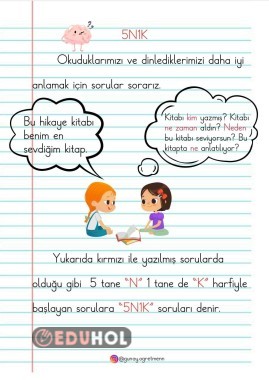 5N1K
Okuduklarımızı ve dinlediklerimizi daha iyi
anlamak için sorular sorarız.
Bu hikaye kitabı
benim en
sevdiğim kitap.
Kitabı kim yazmış? Kitabı
ne zaman aldın? Neden
bu kitabı seviyorsun? Bu
kitapta ne anlatılıyor?
Yukarıda kırmızı ile yazılmış sorularda
olduğu gibi 5 tane "N" 1 tane de "K" harfiyle
başlayan sorulara "5N1K" soruları denir.
EDUHOL
@gunay.ogretmenn